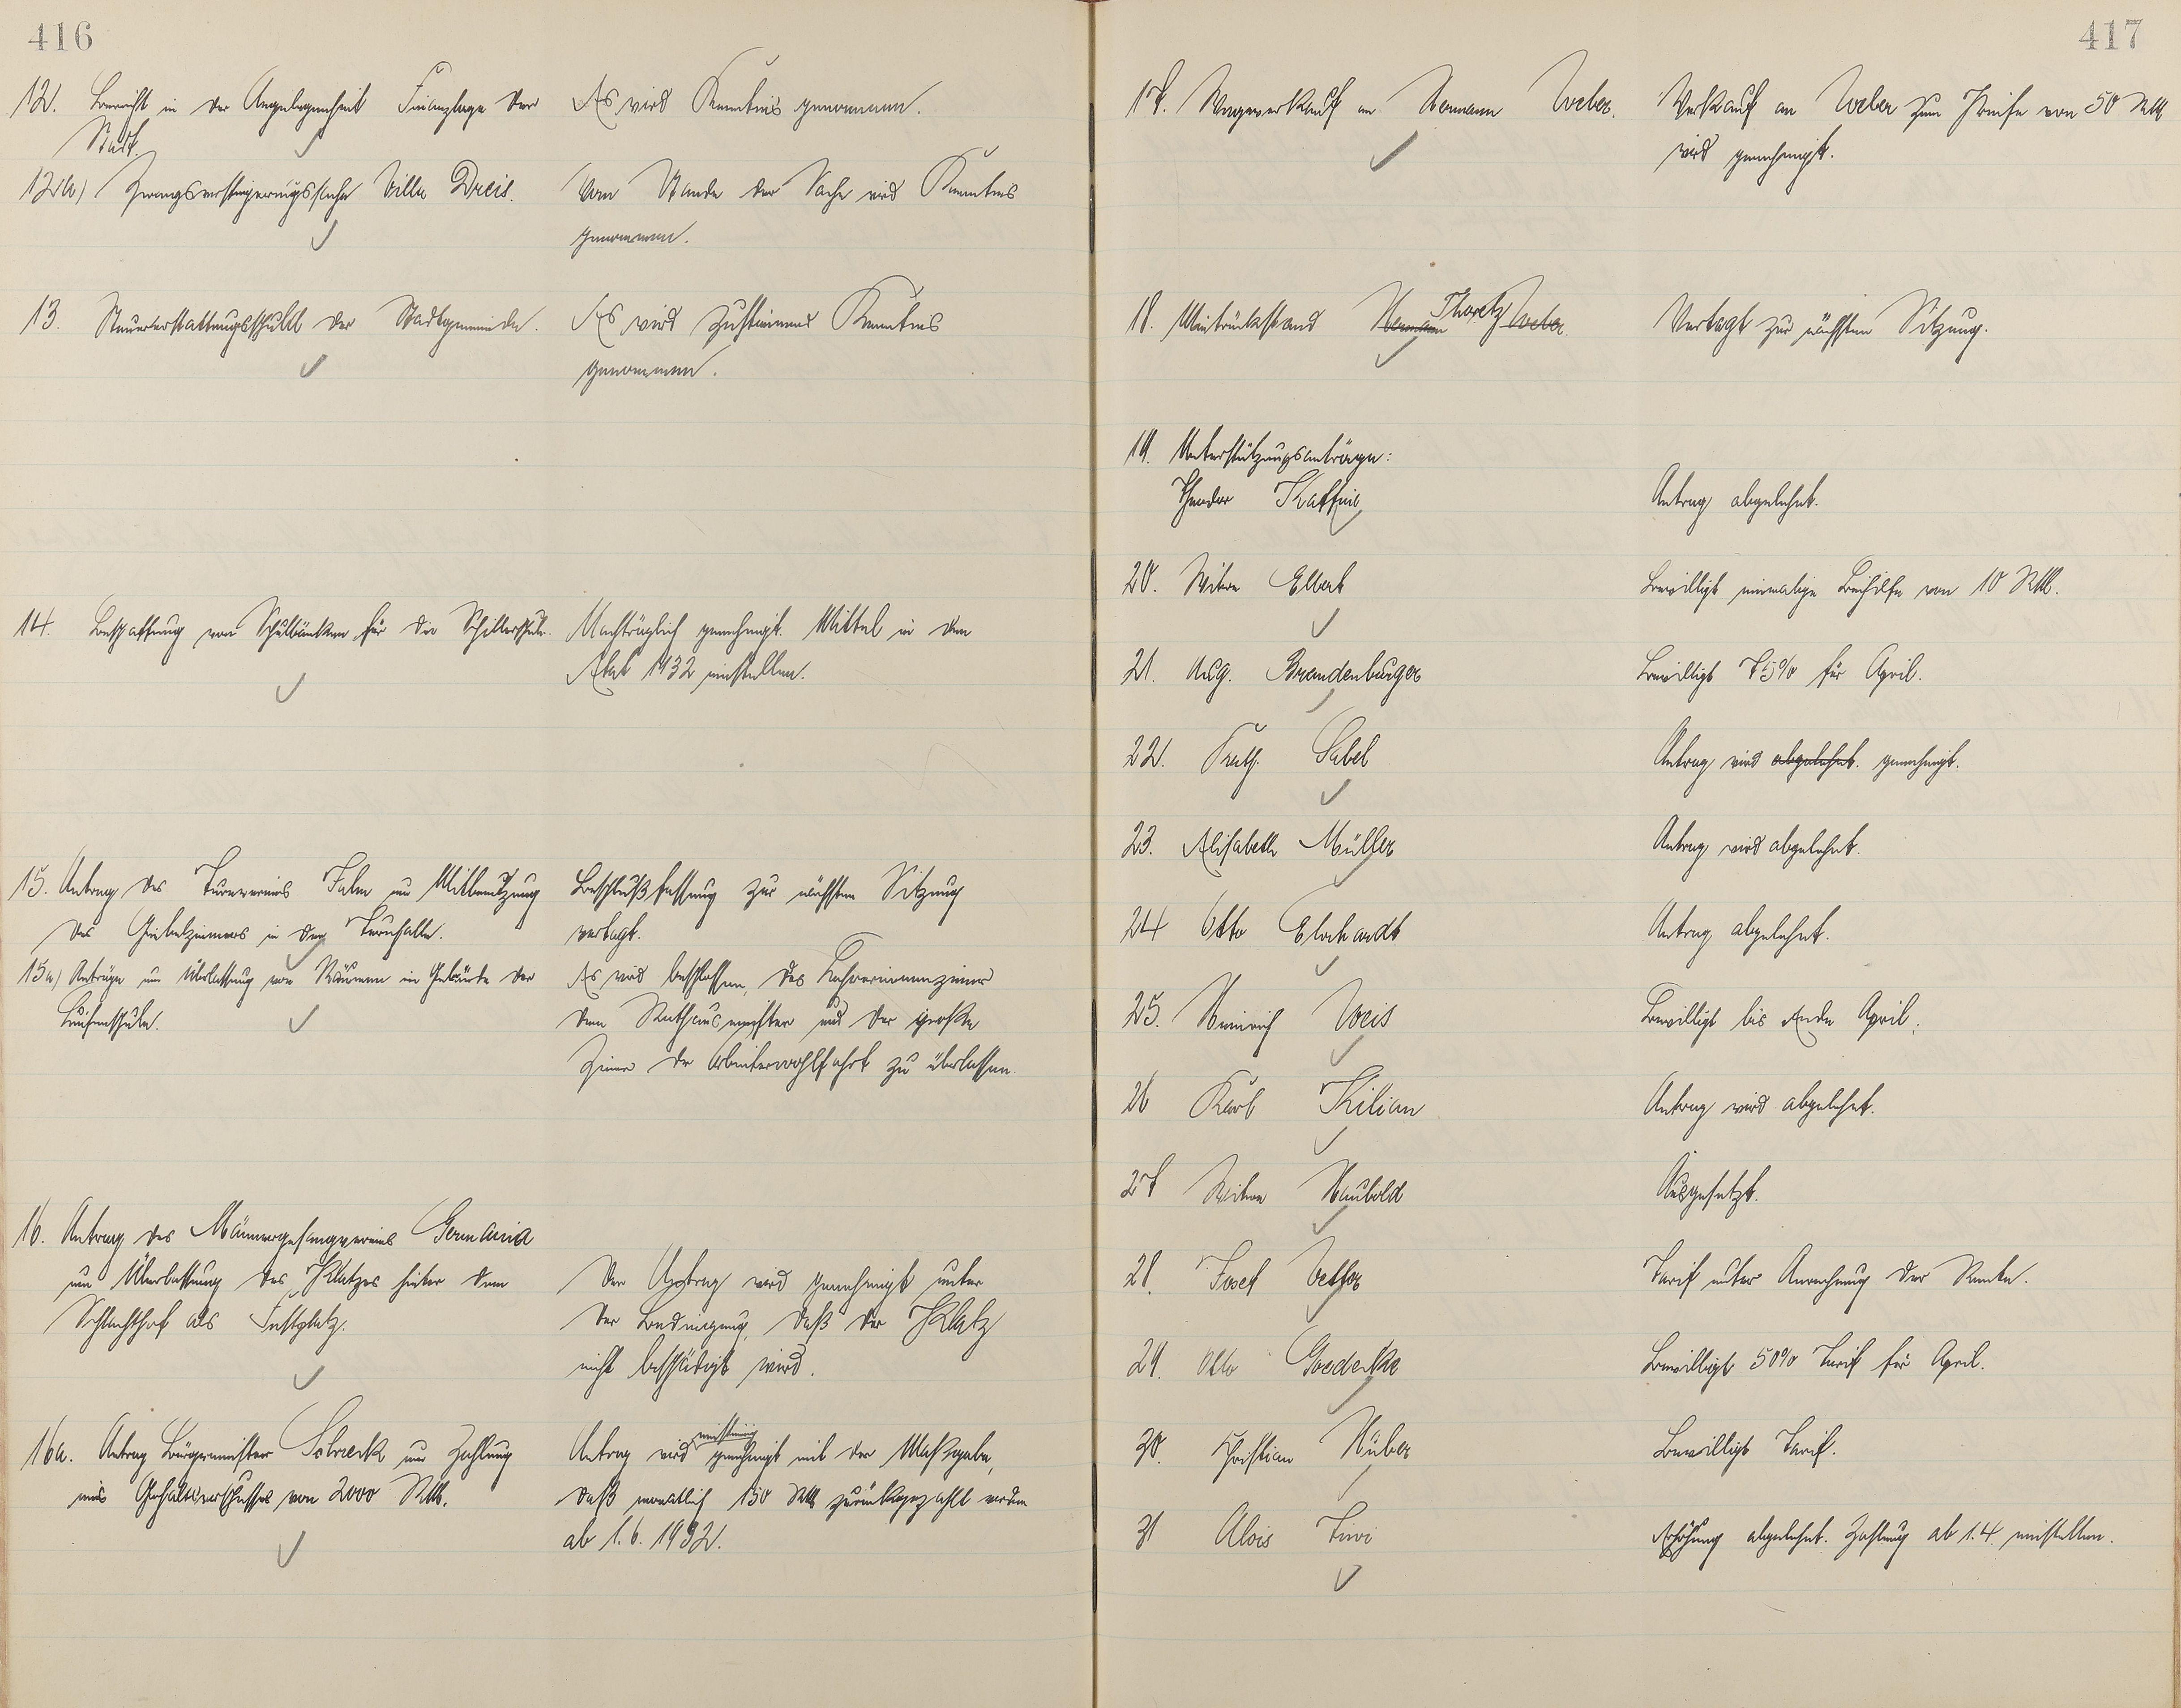 416
12. Bericht in der Angelegenheit Finanzlage der
Stadt.
Es wird Kenntnis genommen.
12a) Zwangsversteigerungssache Villa Dreis.
Vom Stande der Sache wird Kenntnis
genommen.
13. Steuererstattungsschuld der Stadtgemeinde.
Es wird zustimmend Kenntnis
genommen.
14. Beschaffung von Schulbänken für die Schillerschule.
Nachträglich genehmigt. Mittel in den
Etat 1932 einstellen.
15. Antrag des Turnvereins Jahn um Mitbenutzung
des Giebelzimmers in der Turnhalle.
Beschlußfassung zur nächsten Sitzung
vertagt.
15a) Anträge um Überlassung von Räumen im Gebäude der
Luisenschule.
Es wird beschlossen, das Lehrerinnenzimmer
dem Rathausmeister und das große
Zimmer der Arbeiterwohlfahrt zu überlassen.
16. Antrag des Männergesangvereins Germania
um Überlassung des Platzes hinter dem
Schlachthof als Festplatz.
Der Antrag wird genehmigt unter
der Bedingung, daß der Platz
nicht beschädigt wird.
16a. Antrag Bürgermeister Schreck um Zahlung
eines Gehaltsvorschusses von 2000 RM.
einstimmig
Antrag wird genehmigt mit der Maßgabe,
daß monatlich 150 RM zurückgezahlt werden
ab 1.6.1932.
417
17. Wagenverkauf an Hermann Weber.
Verkauf an Weber zum Preise von 50 RM
wird genehmigt.
18. Mietrückstand Hermann Thoretz Weber
Vertagt zur nächsten Sitzung.
19. Unterstützungsanträge:
Theodor Kaffine
Antrag abgelehnt.
20. Witwe Elbert
Bewilligt einmalige Beihilfe von 10 RM.
21. Aug. Brandenburger
Bewilligt 75% für April.
22. Kath. Sabel
Antrag wird abgelehnt. genehmigt.
23. Elisabeth Müller
Antrag wird abgelehnt.
24 Otto Ehrhardt
Antrag abgelehnt.
25. Heinrich Weis
Bewilligt bis Ende April.
26 Karl Kilian
Antrag wird abgelehnt.
27 Witwe Haubold
Ausgesetzt.
28. Josef Vetter
Tarif unter Anrechnung der Rente.
29. Otto Goedecke
Bewilligt 50% Tarif für April.
30. Christian Huber
Bewilligt Tarif.
31 Alois
Erhöhung abgelehnt. Zahlung ab 1.4. einstellen.